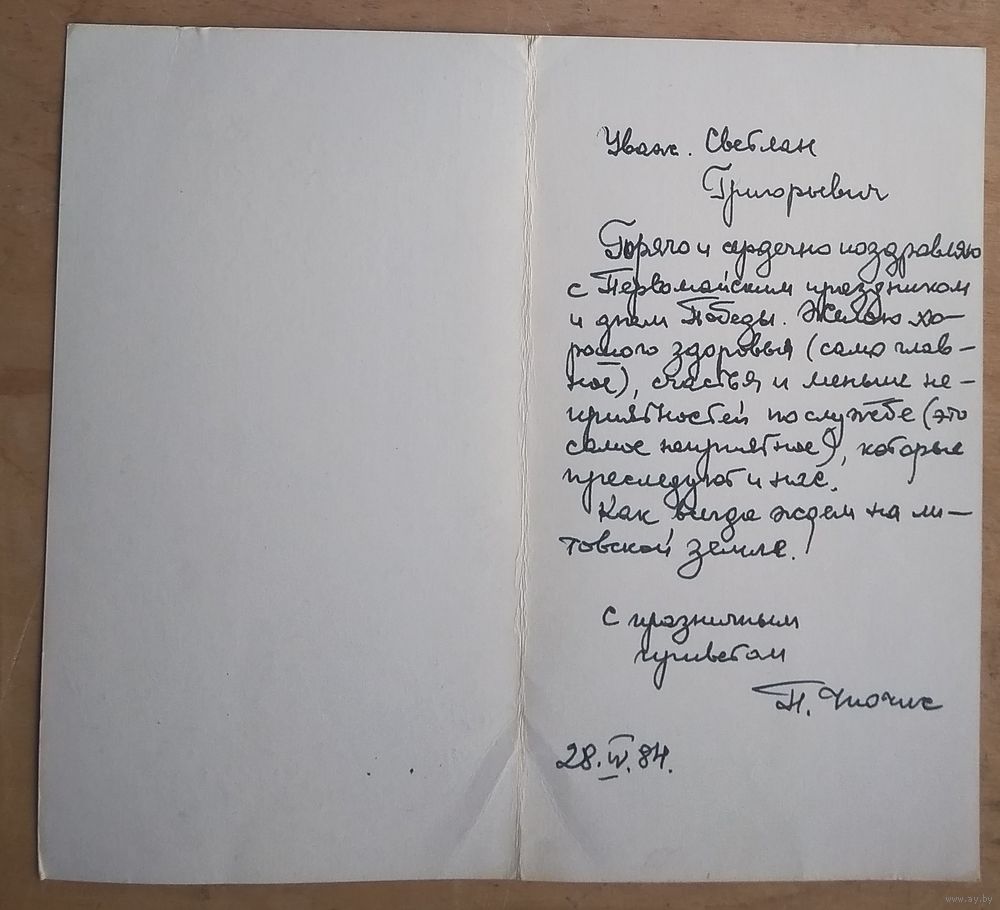 Уваж. Светлан
Григорьевич
Горячо и сердечно поздравляю
с Первомайским праздником
и днем Победы. Желаю хо-
рошего здоровья (само глав-
ное), счастья и меньше не-
приятностей по службе (это
самое неприятное), которые
преследуют и нас.
Как всегда ждем на ли-
товской земле.
С празничным
приветом
П.
28.IV.84.
www.ay.by